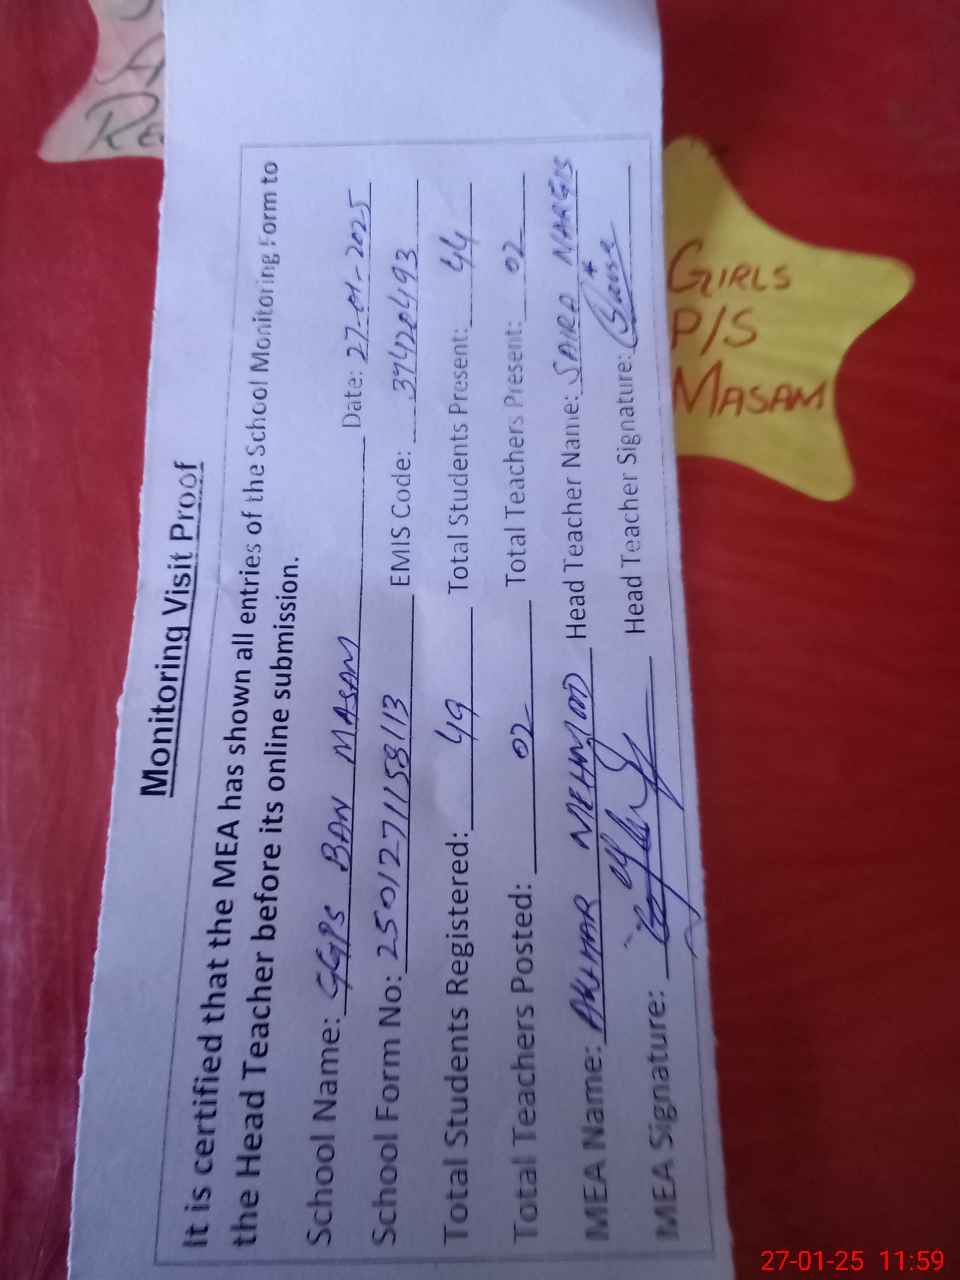 Monitoring Visit Proof
It is certified that the MEA has shown all entries of the School Monitoring Form to
the Head Teacher before its online submission.
School Name: GGPS BAN MASAM Date: 27-01-2025
School Form No: 2501271158113 EMIS Code: 37420493
Total Students Registered: 49 Total Students Present: 44
Total Teachers Posted: 02 Total Teachers Present: 02
MEA Name: AKHTAR MEHMOOD Head Teacher Name: SAIRA NARGIS
MEA Signature: Head Teacher Signature:
GIRLS
P/S
MASAM
27-01-25 11:59